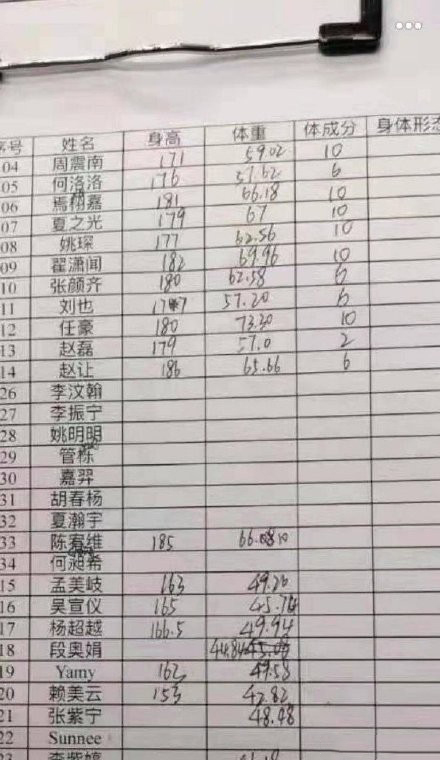 序号 姓名 身高 体重 体成分 身体形态
04 周震南 171 59.02 10
05 何洛洛 176 57.62 6
06 焉栩嘉 181 66.18 10
07 夏之光 179 67 10
08 姚琛 177 62.56 10
09 翟潇闻 182 69.96 10
10 张颜齐 180 62.58 6
11 刘也 57.20 6
12 任豪 180 73.30 10
13 赵磊 179 57.0 2
14 赵让 186 65.66 6
26 李汶翰
27 李振宁
28 姚明明
29 管栎
30 嘉羿
31 胡春杨
32 夏瀚宇
33 陈宥维 185
34 何昶希
15 孟美岐 163 49.20
16 吴宣仪 165 45.74
17 杨超越 166.5 49.94
18 段奥娟 44.84
19 Yamy 162 49.58
20 赖美云 153 42.82
21 张紫宁 48.48
22 Sunnee
23 李紫婷